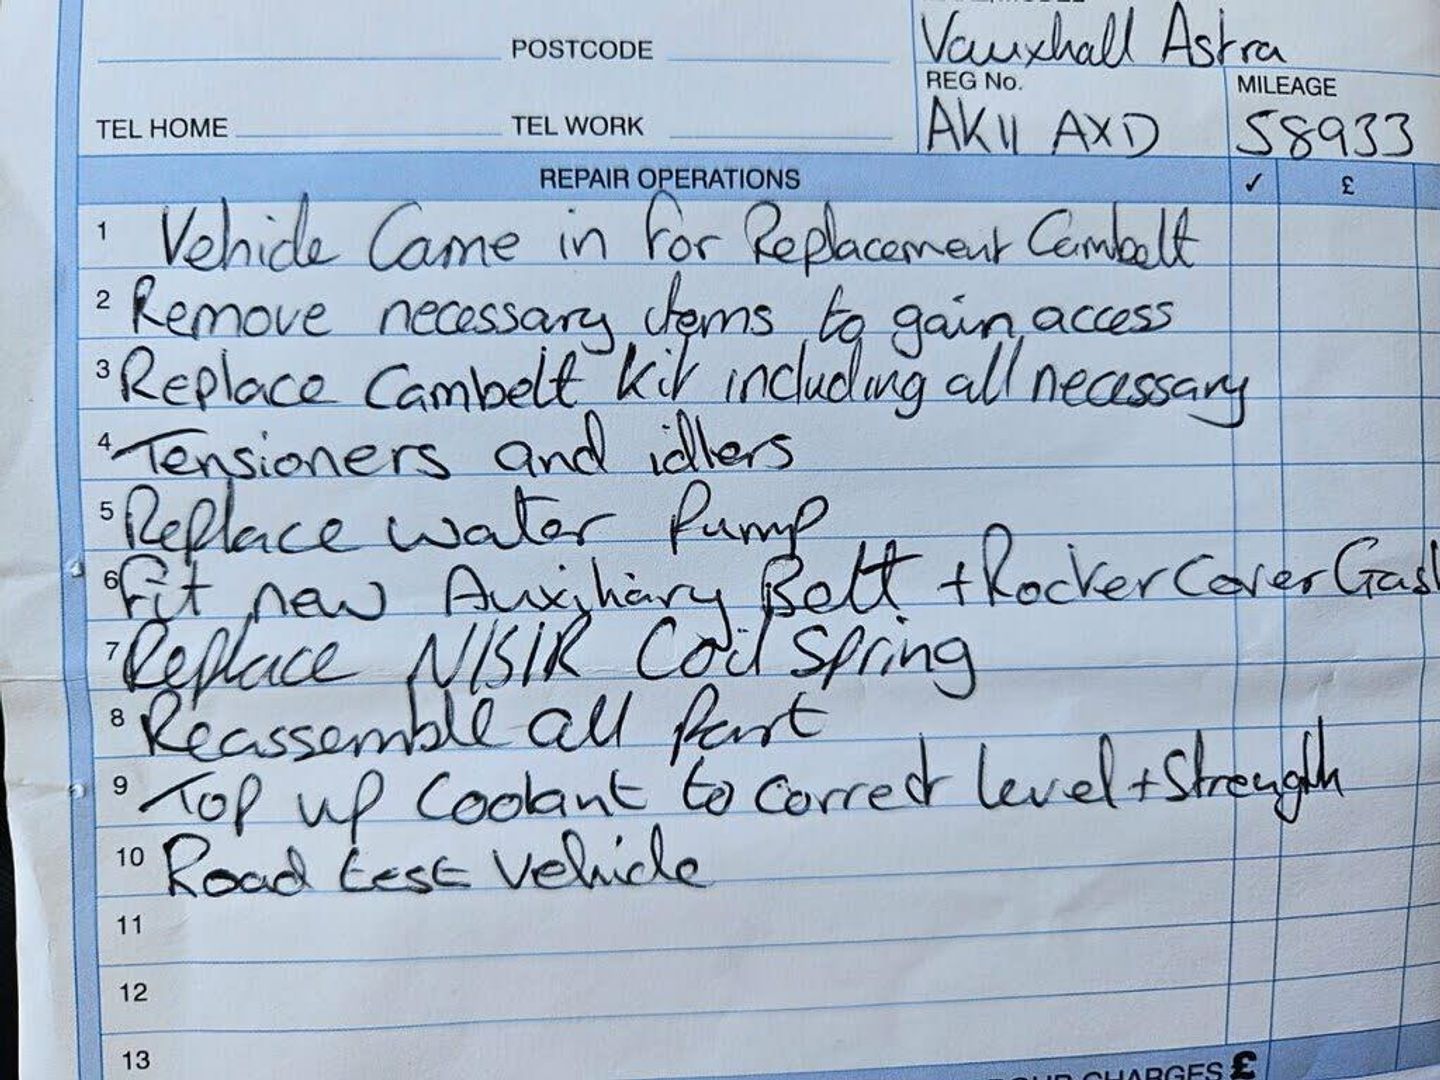 POSTCODE
Vauxhall Astra
REG No.
MILEAGE
TEL HOME
TEL WORK
AK11 AXD
58933
REPAIR OPERATIONS
✓
£
1 Vehicle Came in for Replacement Cambelt
2 Remove necessary items to gain access
3 Replace Cambelt kit including all necessary
4 Tensioners and idlers
5 Replace water Pump
6 Fit new Auxiliary Belt + Rocker Cover Gask
7 Replace N/S/R Coil Spring
8 Reassemble all Part
9 Top up Coolant to correct level + Strength
10 Road test Vehicle
11
12
13
CHARGES £